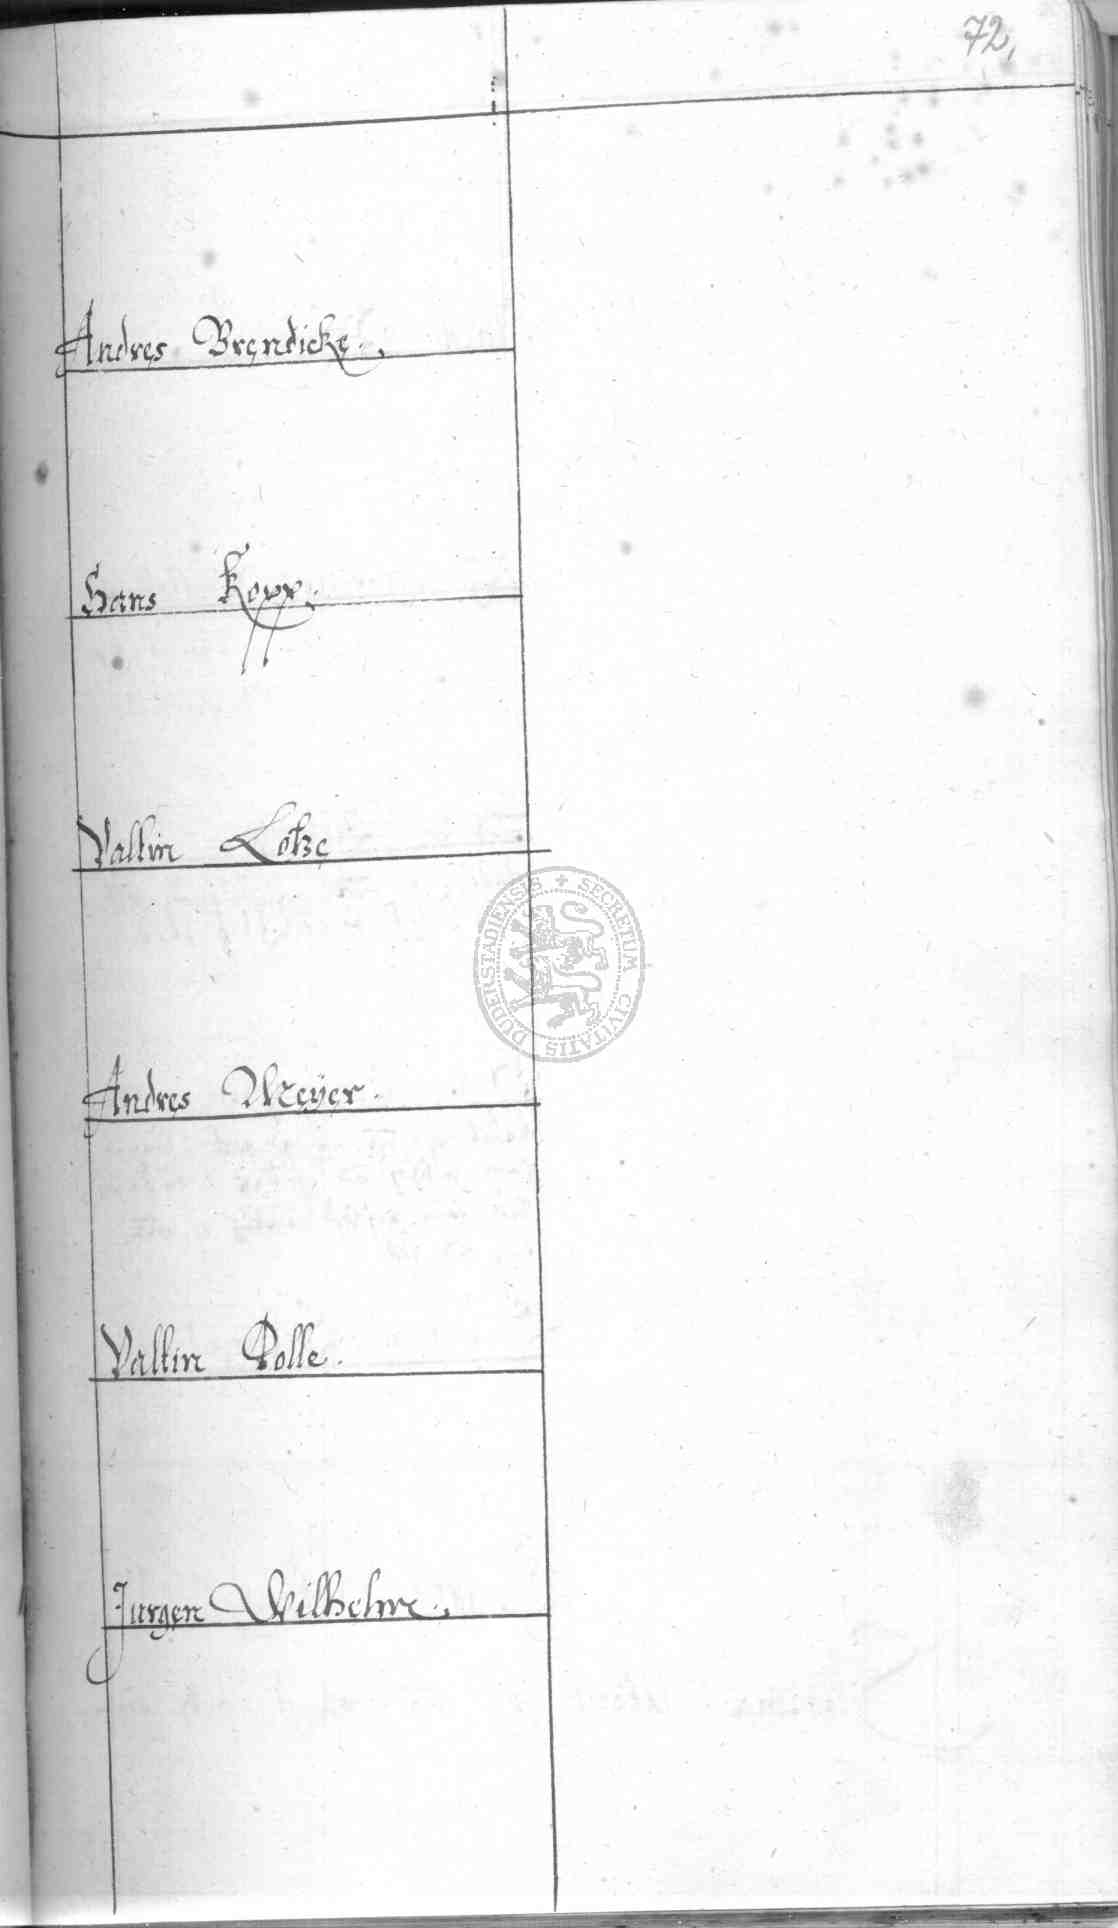 72,
Andres Brendicke.
Hans Kopp.
Valtin Lotze
SECRETUM CIVITATIS DUDERSTADIENSIS
Andres Meÿer.
Valtin Polle.
Jurgen Wilhelm.